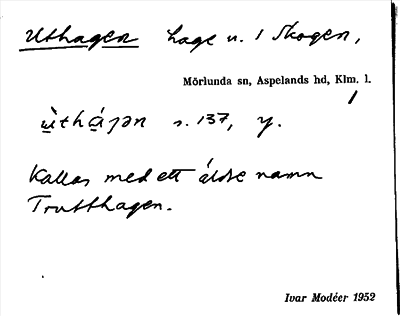 Uthagen hage n. i Skogen,
Mörlunda sn, Aspelands hd, Klm. l.
1
ùthágən s. 137, y.
Kallas med ett äldre namn
Trutthagen.
Ivar Modéer 1952